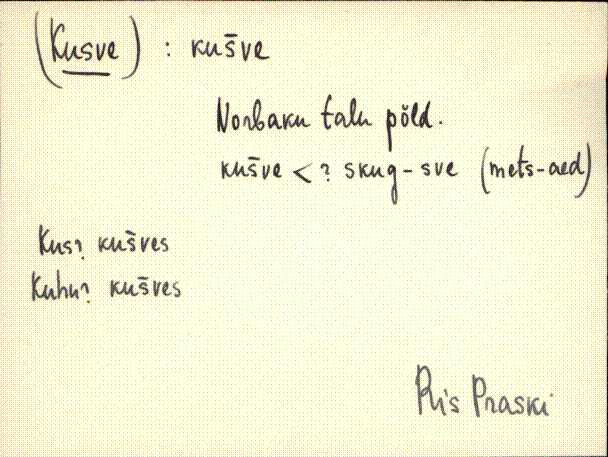 (Kusve) : kus̄ve
Norbaku talu põld.
kus̄ve < ? skug-sve (mets-aed)
Kus? kus̄ves
Kuhu? kus̄ves
Ris Praski